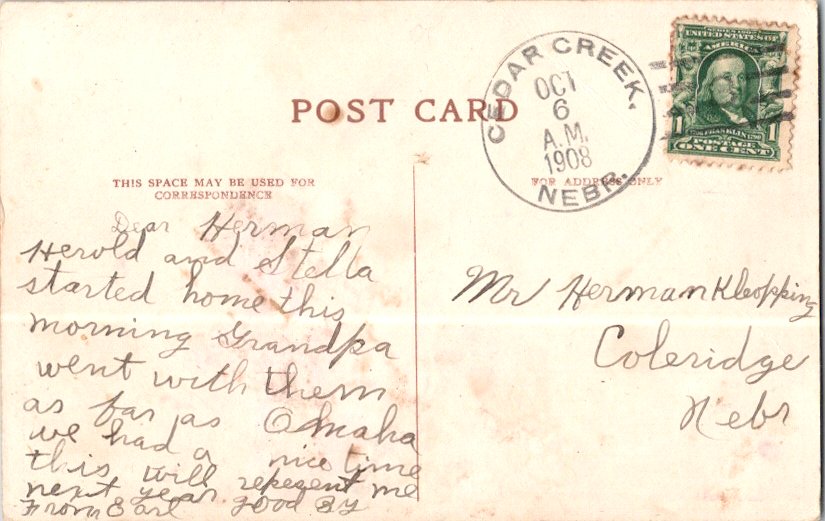 POST CARD
CEDAR CREEK,
OCT
6
A.M.
1908
NEBR.
SERIES 1902
UNITED STATES OF
AMERICA
1 FRANKLIN 1
POSTAGE
ONE CENT
THIS SPACE MAY BE USED FOR
CORRESPONDENCE
FOR ADDRESS ONLY
Dear Herman
Herold and Stella
started home this
morning Grandpa
went with them
as far as Omaha
we had a nice time
this will repesent me
next year
From Earl Good By
Mr Herman Kloopping
Coleridge
Nebr